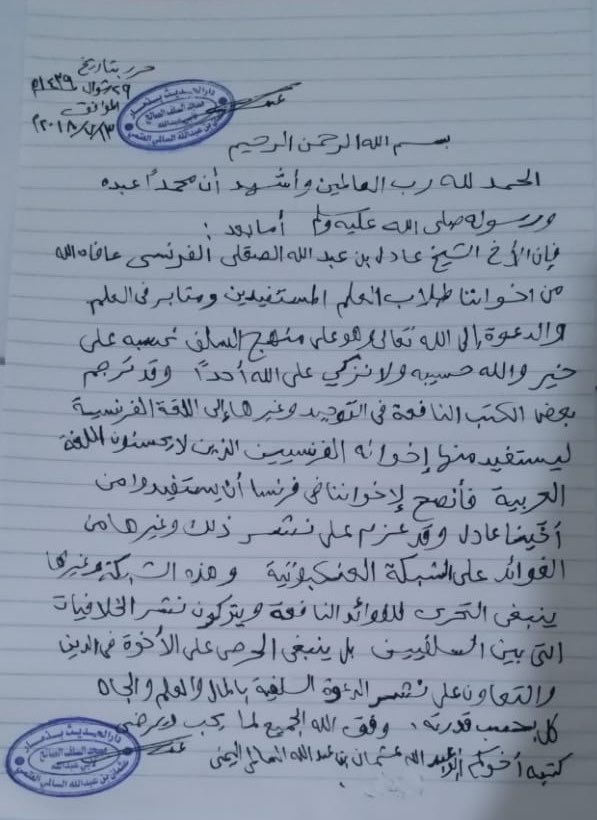 حرر بتاريخ
٢٩ شوال ١٤٣٩ه
الموافق
٢٠١٨/٧/١٣م
دار الحديث بذمار
مسجد السلف الصالح
عثمان بن عبدالله السالمي العتمي
بسم الله الرحمن الرحيم
الحمد لله رب العالمين وأشهد أن محمدًا عبده
ورسوله صلى الله عليه وسلم أما بعد :
فإن الأخ الشيخ عادل بن عبد الله الصقلي الفرنسي عافاه الله
من اخواننا طلاب العلم المستفيدين ومثابر في العلم
والدعوة إلى الله تعالى وهو على منهج السلف نحسبه على
خير والله حسيبه ولا نزكي على الله أحدًا وقد ترجم
بعض الكتب النافعة في التوحيد وغيرها إلى اللغة الفرنسية
ليستفيد منها إخوانه الفرنسيين الذين لا يحسنون اللغة
العربية فأنصح لإخواننا في فرنسا أن يستفيدوا من
أخينا عادل وقد عزم على نشر ذلك وغيرها من
الفوائد على الشبكة العنكبوتية وهذه الشبكة وغيرها
ينبغي التحري للفوائد النافعة ويتركون نشر الخلافيات
التي بين السلفيين بل ينبغي الحرص على الأخوة في الدين
والتعاون على نشر الدعوة السلفية بالمال والعلم والجاه
كل بحسب قدرته . وفق الله الجميع لما يحب ويرضى
كتبه أخوكم أبو عبد الله عثمان بن عبد الله السالمي اليمني
دار الحديث بذمار
مسجد السلف الصالح
عثمان بن عبدالله السالمي العتمي